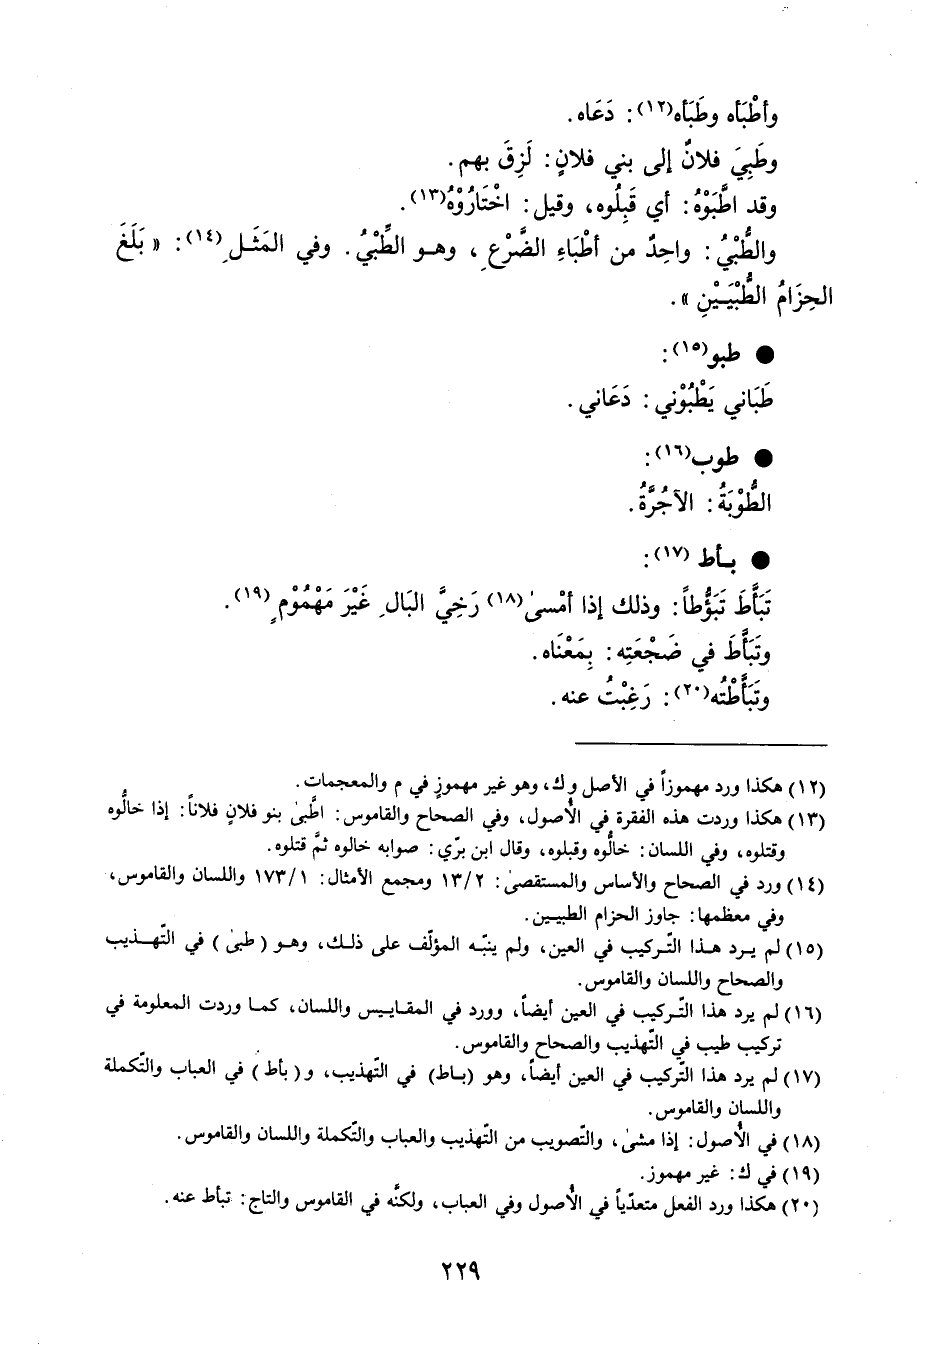 وأطْبَأه وطَبَأه(١٢): دَعَاه.
وطَبِيَ فلانٌ إلى بني فلانٍ: لَزِقَ بهم.
وقد اطَّبَوْهُ: أي قَبِلُوه، وقيل: اخْتَارُوْهُ(١٣).
والطُّبْيُ: واحِدٌ من أطْبَاءِ الضَّرْعِ، وهو الطِّبْيُ. وفي المَثَلِ(١٤): «بَلَغَ
الحِزَامُ الطُّبْيَيْنِ».
● طبو(١٥):
طَبَاني يَطْبُوْني: دَعَاني.
● طوب(١٦):
الطُّوْبَةُ: الآجُرَّةُ.
● بأط (١٧):
تَبَأَّطَ تَبَؤُّطاً: وذلك إذا أمْسىٰ(١٨) رَخِيَّ البَالِ غَيْرَ مَهْمُوْمٍ(١٩).
وتَبَأَّطَ في ضَجْعَتِه: بِمَعْنَاه.
وتَبَأَّطْتُه(٢٠): رَغِبْتُ عنه.
(١٢) هكذا ورد مهموزاً في الأصل وك، وهو غير مهموزٍ في م والمعجمات.
(١٣) هكذا وردت هذه الفقرة في الأُصول، وفي الصحاح والقاموس: اطَّبىٰ بنو فلانٍ فلاناً: إذا خالُّوه
وقتلوه، وفي اللسان: خالُّوه وقبلوه، وقال ابن برّي: صوابه خالوه ثمَّ قتلوه.
(١٤) ورد في الصحاح والأساس والمستقصىٰ: ١٣/٢ ومجمع الأمثال: ١٧٣/١ واللسان والقاموس،
وفي معظمها: جاوز الحزام الطبيين.
(١٥) لم يرد هذا التّركيب في العين، ولم ينبّه المؤلّف على ذلك، وهو (طبىٰ) في التّهذيب
والصحاح واللسان والقاموس.
(١٦) لم يرد هذا التّركيب في العين أيضاً، وورد في المقاييس واللسان، كما وردت المعلومة في
تركيب طيب في التّهذيب والصحاح والقاموس.
(١٧) لم يرد هذا التّركيب في العين أيضاً، وهو (باط) في التّهذيب، و(بأط) في العباب والتّكملة
واللسان والقاموس.
(١٨) في الأُصول: إذا مشىٰ، والتّصويب من التّهذيب والعباب والتّكملة واللسان والقاموس.
(١٩) في ك: غير مهموز.
(٢٠) هكذا ورد الفعل متعدّياً في الأُصول وفي العباب، ولكنَّه في القاموس والتاج: تبأط عنه.
٢٢٩